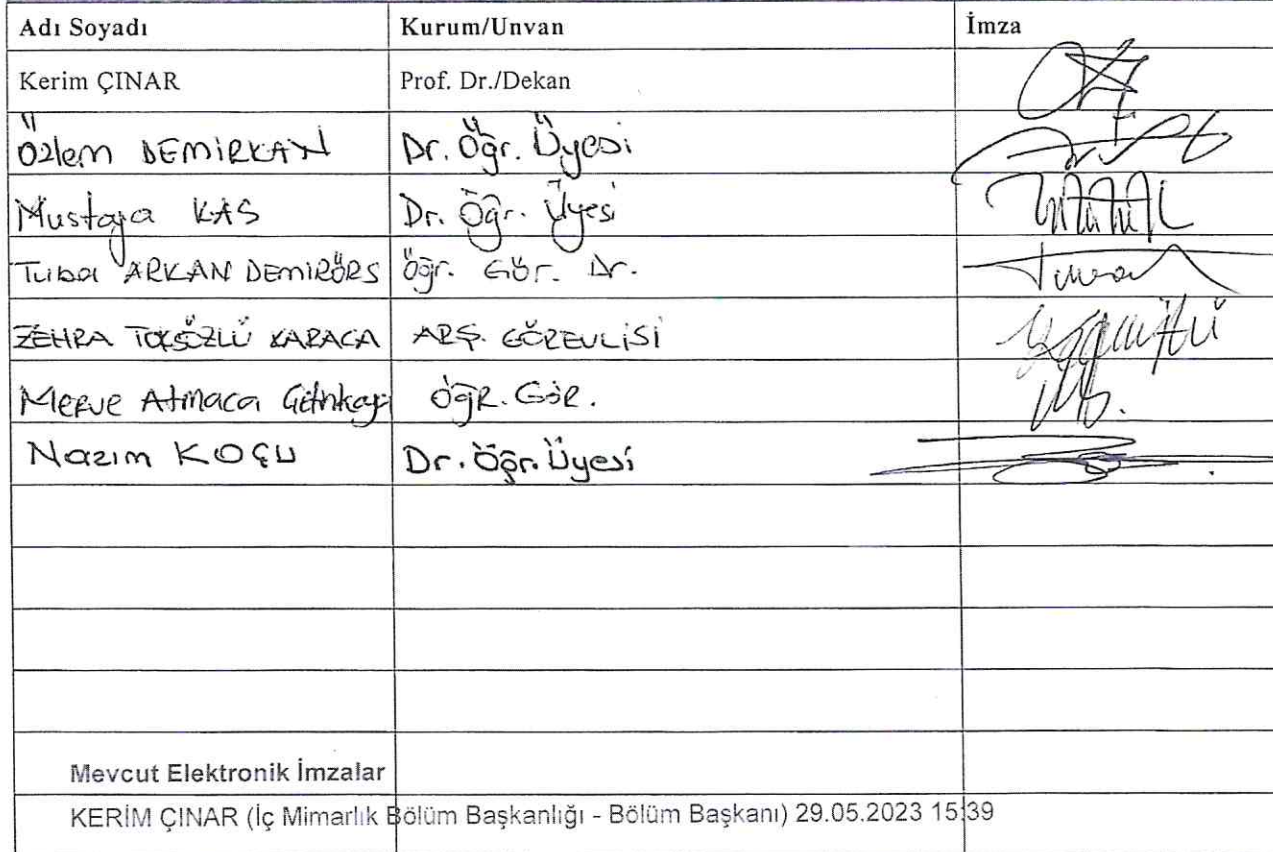 Adı Soyadı Kurum/Unvan İmza
Kerim ÇINAR Prof. Dr./Dekan
Özlem DEMİRKAN Dr. Öğr. Üyesi
Mustafa KAS Dr. Öğr. Üyesi
Tuba ARKAN DEMİRÖRS Öğr. Gör. Dr.
ZEHRA TOKSÖZLÜ KARACA ARŞ. GÖREVLİSİ
Merve Atmaca ÖğR. GöR.
Nazım KOÇU Dr. Öğr. Üyesi
Mevcut Elektronik İmzalar
KERİM ÇINAR (İç Mimarlık Bölüm Başkanlığı - Bölüm Başkanı) 29.05.2023 15:39